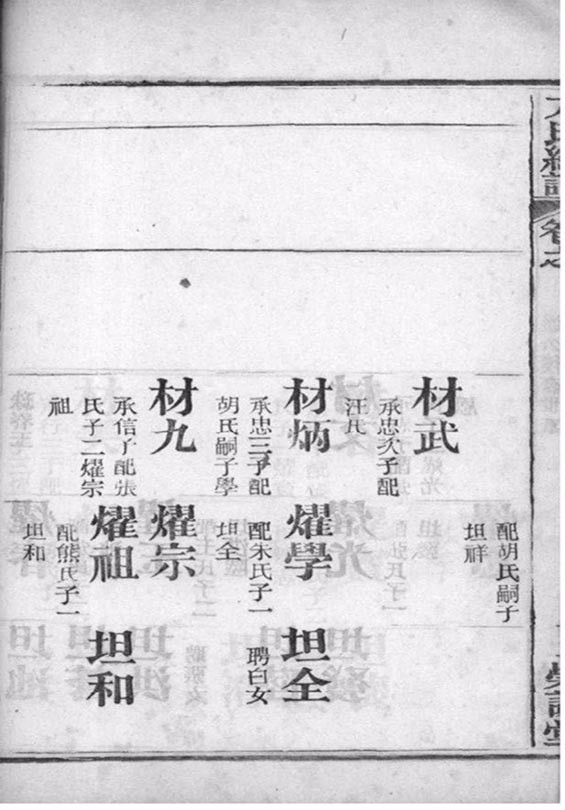 方氏經譜
卷之
配胡氏嗣子
坦祥
材武
承忠次子配
汪氏
材炳
承忠三子配
胡氏嗣子學
燿學
配朱氏子一
坦全
坦全
聘白女
材九
承信子配張
氏子二燿宗
祖
燿宗
燿祖
配熊氏子一
坦和
坦和